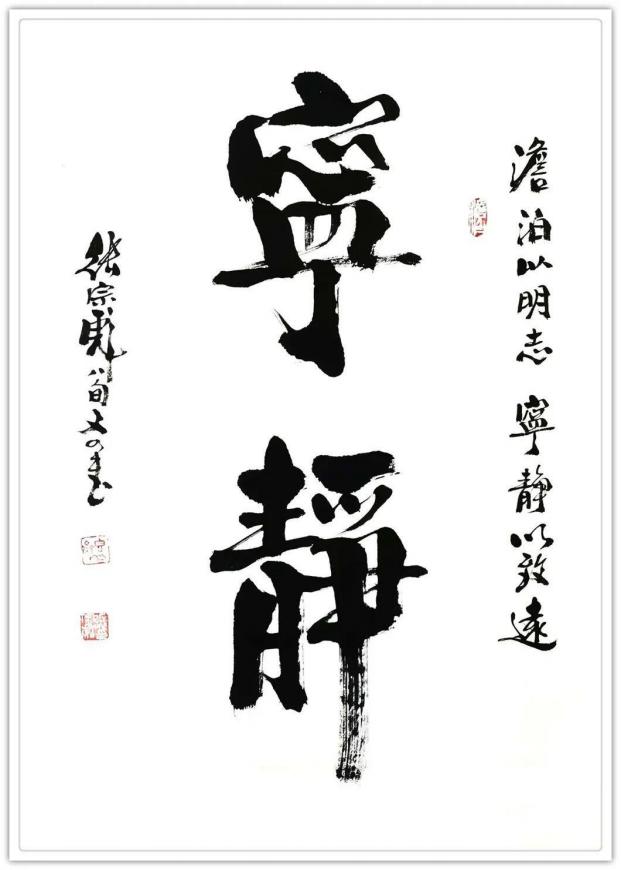 澹泊以明志 寧靜以致遠
寧靜
張宗彪八旬又四書